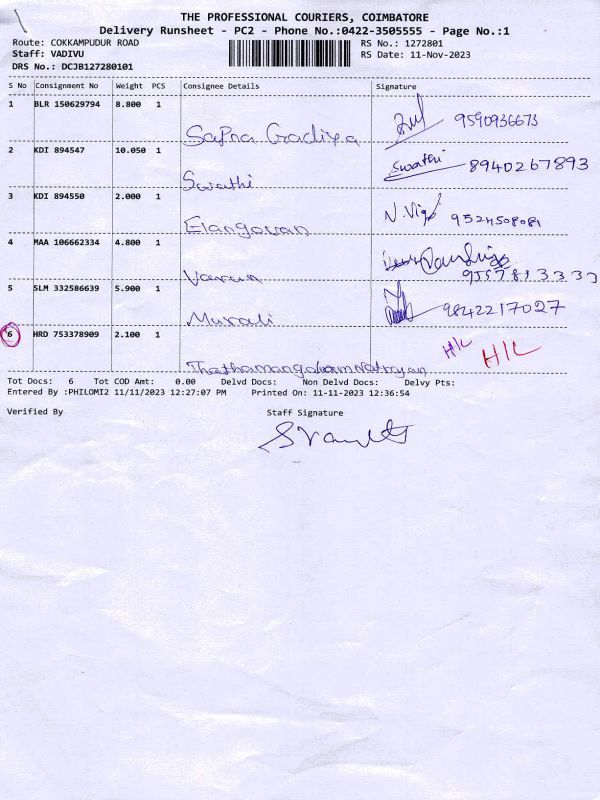 THE PROFESSIONAL COURIERS, COIMBATORE
Delivery Runsheet - PC2 - Phone No.:0422-3505555 - Page No.:1
Route: COKKAMPUDUR ROAD RS No.: 1272801
Staff: VADIVU RS Date: 11-Nov-2023
DRS No.: DCJB127280101
S No Consignment No Weight PCS Consignee Details Signature
1 BLR 150629794 8.800 1
Sapna Gadiya 9590936673
2 KDI 894547 10.050 1
Swathi Swathi 8940267893
3 KDI 894550 2.000 1
Elangovan N. 9524508081
4 MAA 106662334 4.800 1
Varun
5 SLM 332586639 5.900 1
Murali 9842217027
6 HRD 753378909 2.100 1
H/L H/L
Tot Docs: 6 Tot COD Amt: 0.00 Delvd Docs: Non Delvd Docs: Delvy Pts:
Entered By :PHILOMI2 11/11/2023 12:27:07 PM Printed On: 11-11-2023 12:36:54
Verified By Staff Signature